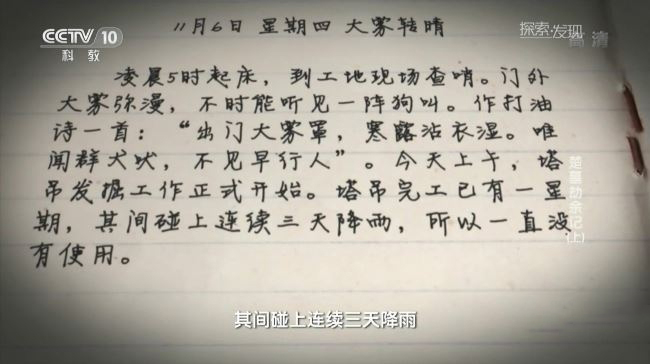 CCTV 10
科教
探索·发现
高清
11月6日 星期四 大雾转晴
凌晨5时起床，到工地现场查哨。门外
大雾弥漫，不时能听见一阵狗叫。作打油
诗一首：“出门大雾罩，寒露沾衣湿。唯
闻群犬吠，不见早行人”。今天上午，塔
吊发掘工作正式开始。塔吊完工已有一星
期，其间碰上连续三天降雨，所以一直没
有使用。
楚墓劫余记(上)
其间碰上连续三天降雨